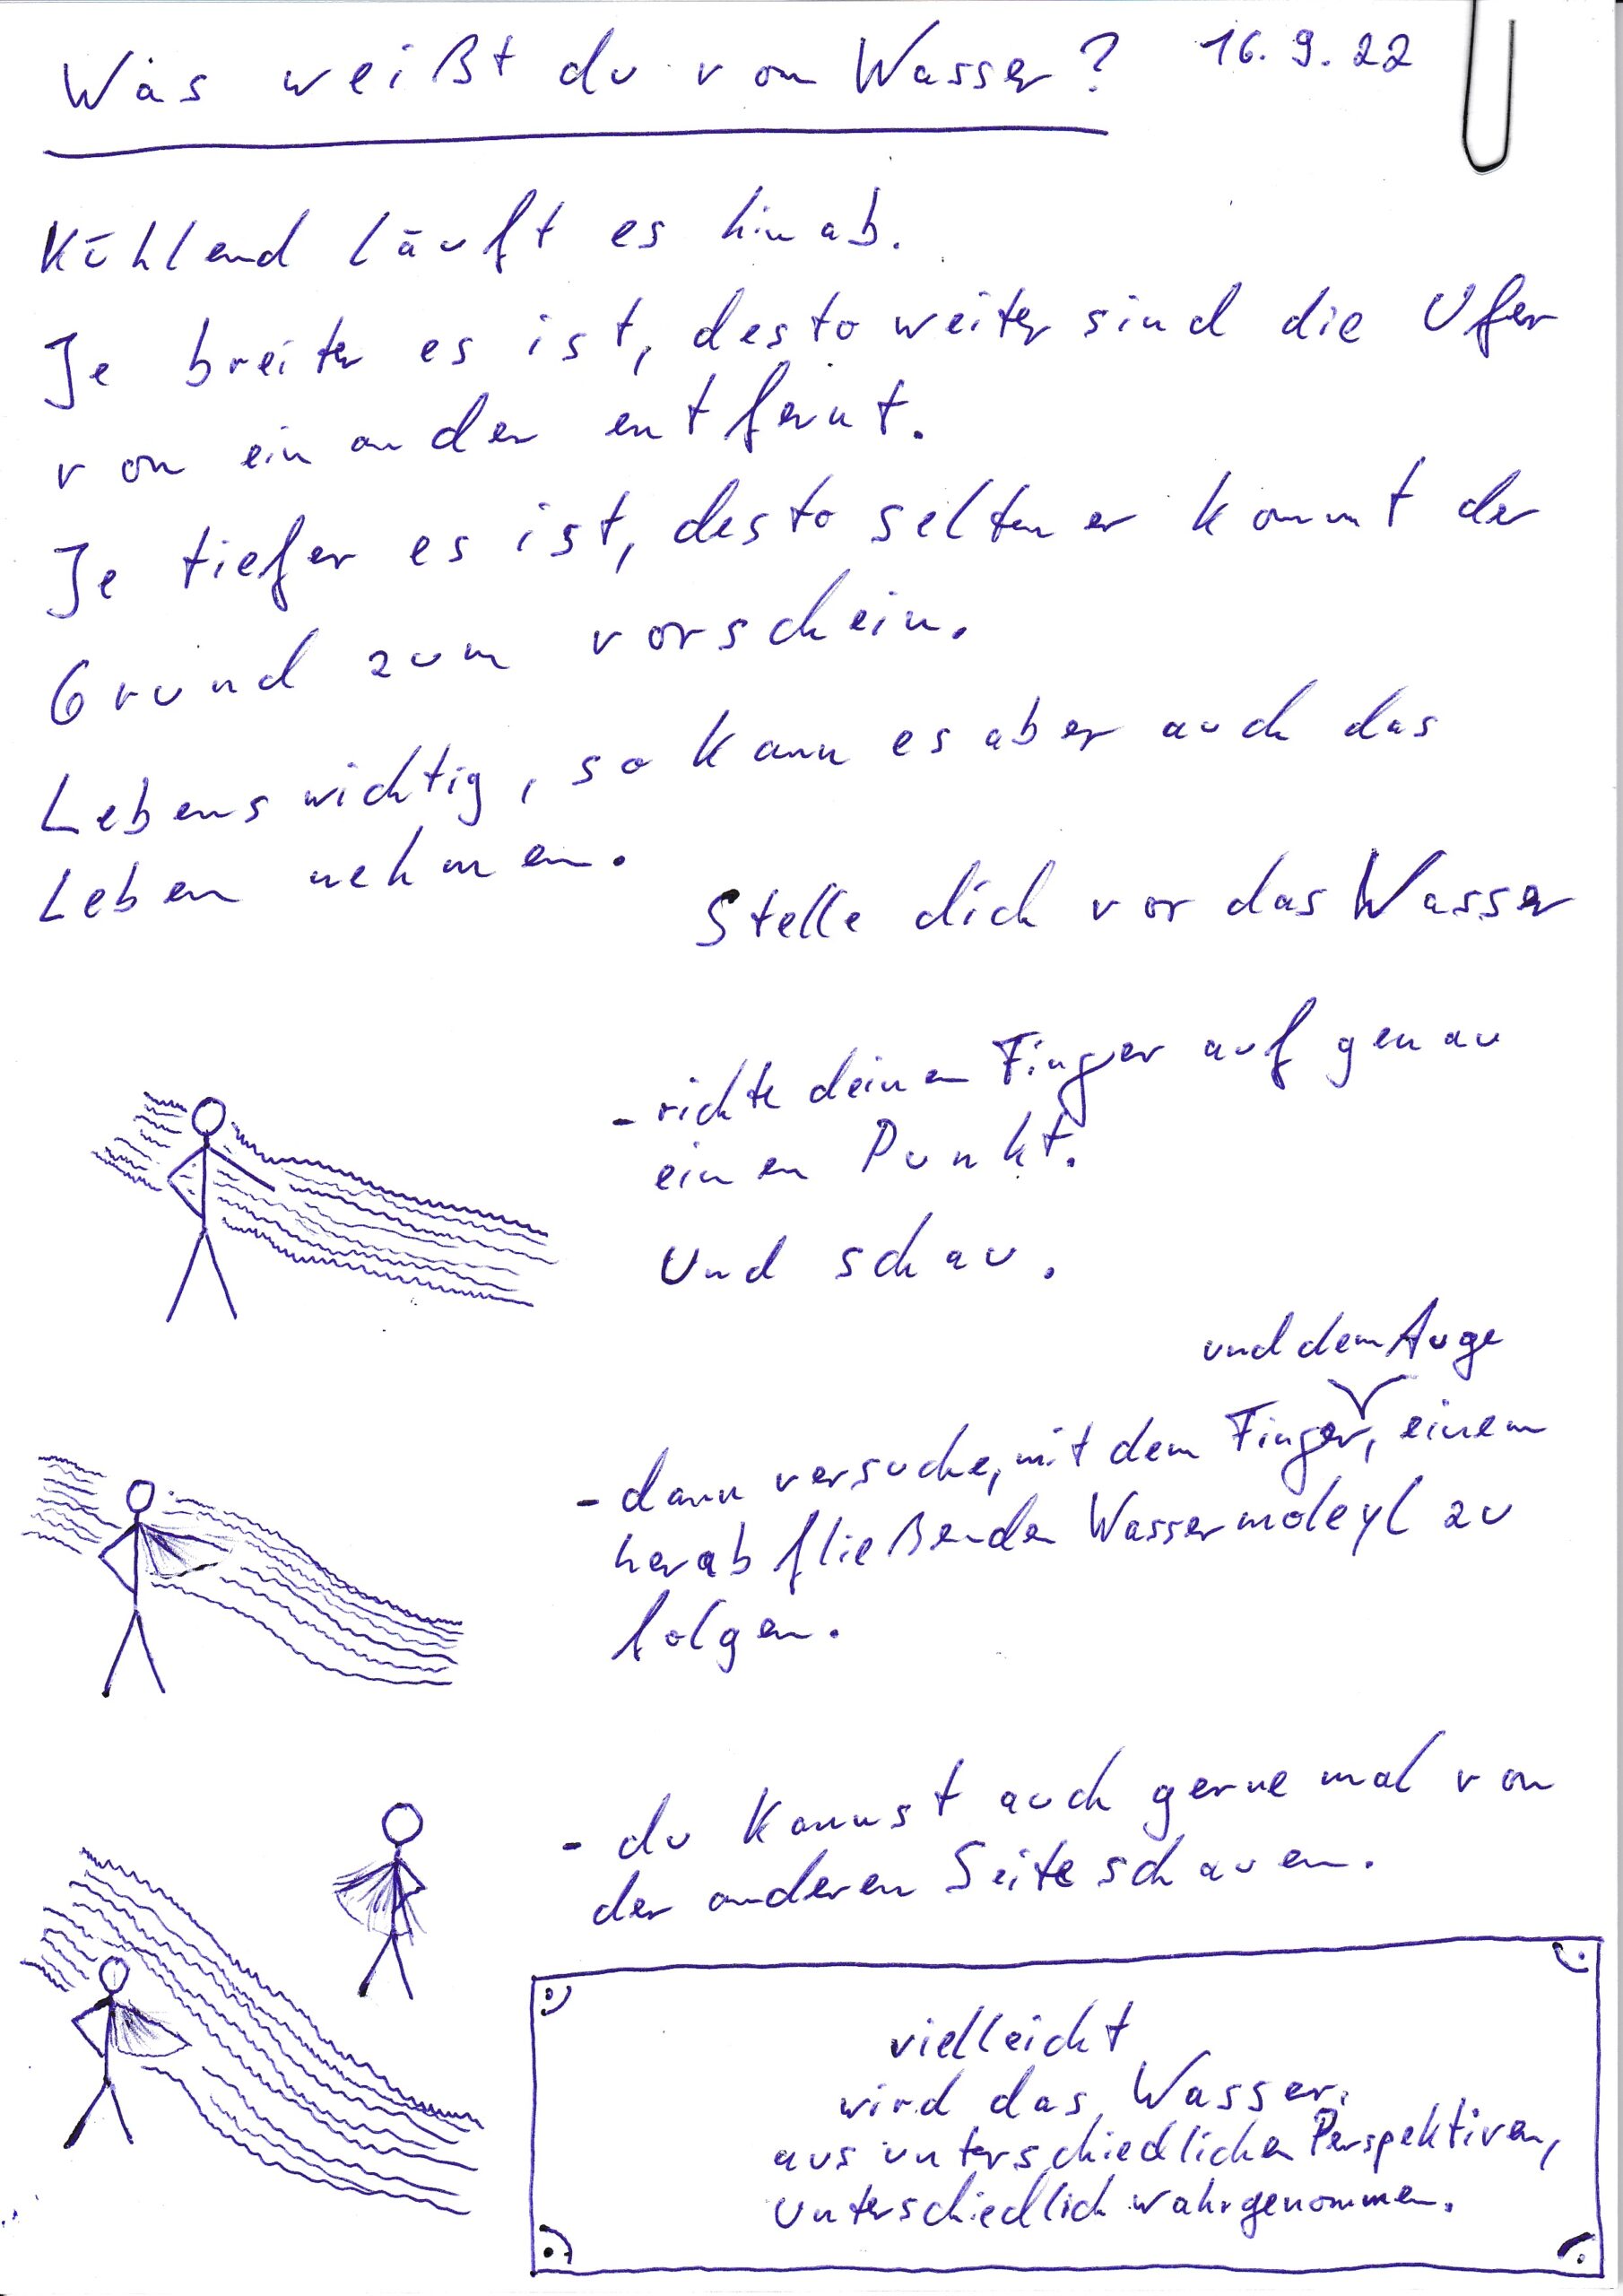 Was weißt du von Wasser? 16.9.22
Kühlend läuft es hinab.
Je breiter es ist, desto weiter sind die Ufer
von einander entfernt.
Je tiefer es ist, desto seltener kommt der
Grund zum vorschein.
Lebenswichtig, so kann es aber auch das
Leben nehmen.
Stelle dich vor das Wasser
- richte deinen Finger auf genau
einen Punkt.
Und schau.
und dem Auge
- dann versuche, mit dem Finger, einem
herabfließenden Wassermoleyl zu
folgen.
- du kannst auch gerne mal von
der anderen Seite schauen.
vielleicht
wird das Wasser,
aus unterschiedlichen Perspektiven,
unterschiedlich wahrgenommen.